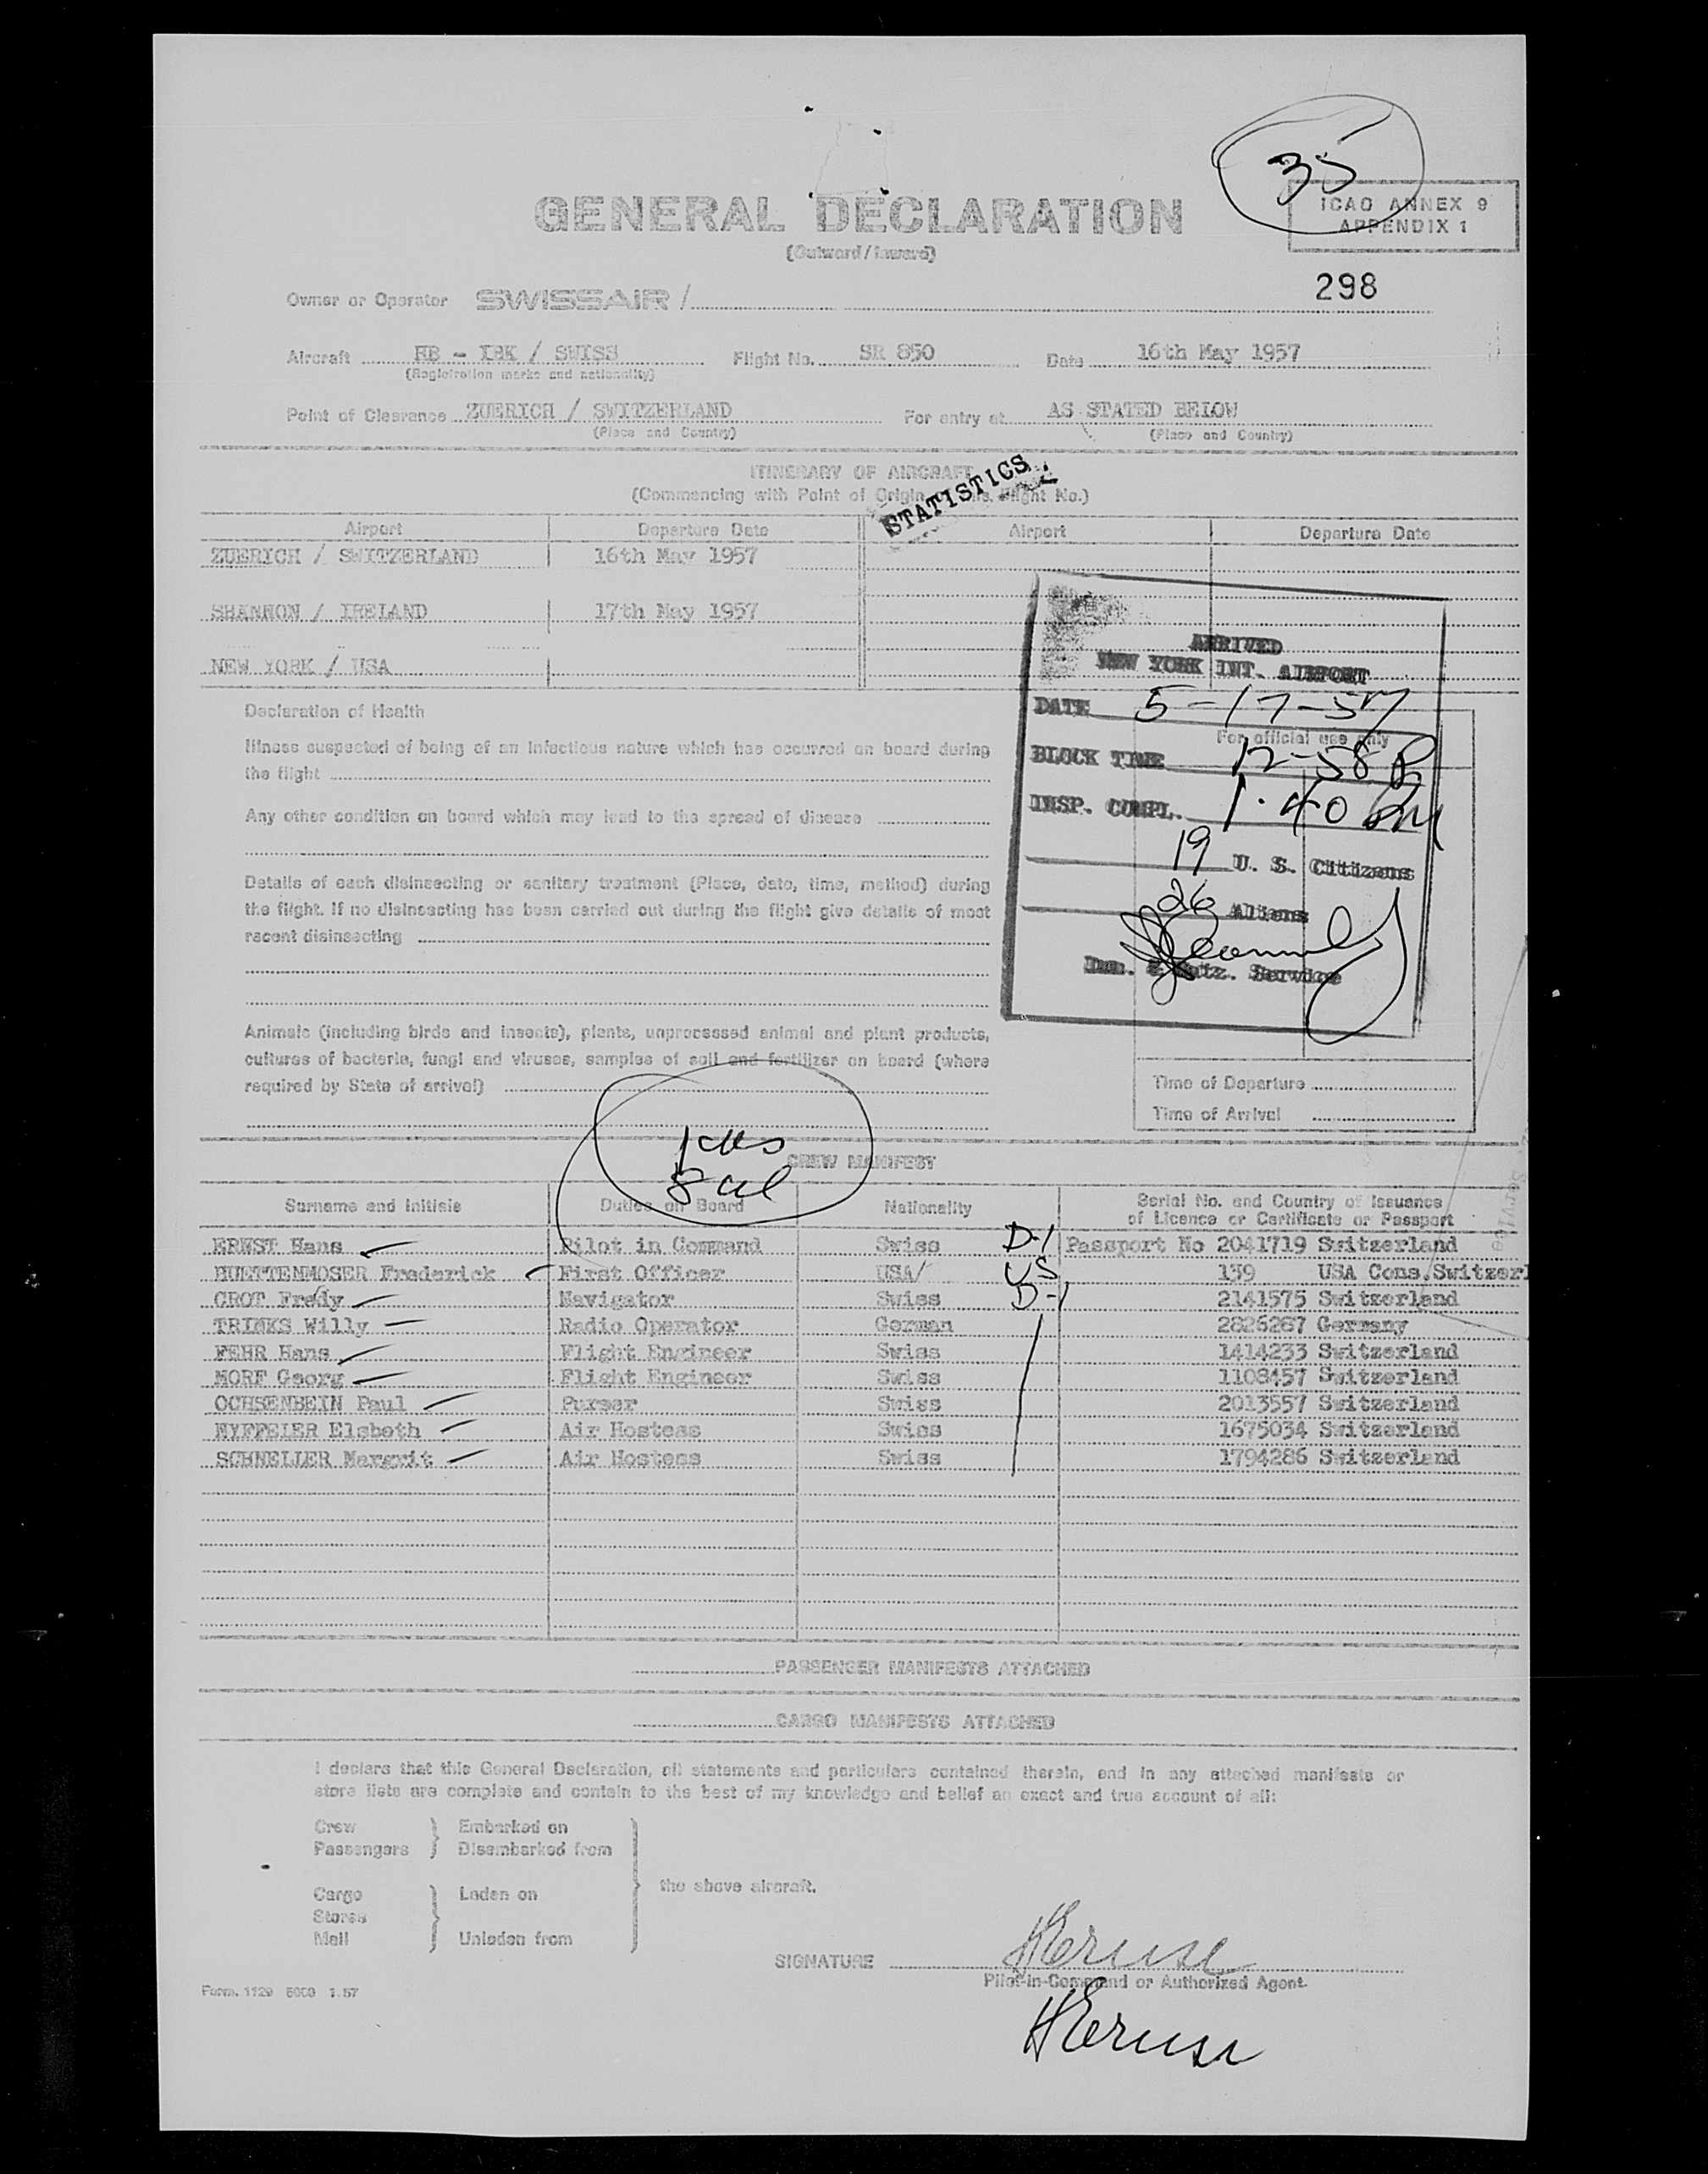 35
ICAO ANNEX 9
APPENDIX 1
GENERAL DECLARATION
(Outward/Inward)
298
Owner or Operator SWISSAIR /
Aircraft HB - IBK / SWISS Flight No. SR 850 Date 16th May 1957
(Registration marks and nationality)
Point of Clearance ZUERICH / SWITZERLAND For entry at AS STATED BELOW
(Place and Country) (Place and Country)
ITINERARY OF AIRCRAFT
(Commencing with Point of Origin Flight No.)
STATISTICS
Airport Departure Date Airport Departure Date
ZUERICH / SWITZERLAND 16th May 1957
SHANNON / IRELAND 17th May 1957
NEW YORK / USA
ARRIVED
NEW YORK INT. AIRPORT
DATE 5-17-57
For official use only
BLOCK TIME 12-58 P
INSP. COMPL. 1.40 PM
19 U. S. Citizens
26 Aliens
Imm. & Natz. Service
Declaration of Health
Illness suspected of being of an infectious nature which has occurred on board during
the flight
Any other condition on board which may lead to the spread of disease
Details of each disinsecting or sanitary treatment (Place, date, time, method) during
the flight. If no disinsecting has been carried out during the flight give details of most
recent disinsecting
Animals (including birds and insects), plants, unprocessed animal and plant products,
cultures of bacteria, fungi and viruses, samples of soil and fertilizer on board (where
required by State of arrival)
Time of Departure
Time of Arrival
CREW MANIFEST
Surname and Initials Duties on Board Nationality Serial No. and Country of Issuance
of Licence or Certificate or Passport
ERNST Hans Pilot in Command Swiss D-1 Passport No 2041719 Switzerland
HUETTENMOSER Frederick First Officer USA/ US 139 USA Cons.Switzerl
CROT Fredy Navigator Swiss D-1 2141575 Switzerland
TRINKS Willy Radio Operator German 2826287 Germany
FEHR Hans Flight Engineer Swiss 1414233 Switzerland
MORF Georg Flight Engineer Swiss 1108457 Switzerland
OCHSENBEIN Paul Purser Swiss 2013557 Switzerland
NYFFELER Elsbeth Air Hostess Swiss 1675034 Switzerland
SCHNELLER Margrit Air Hostess Swiss 1794286 Switzerland
PASSENGER MANIFESTS ATTACHED
CARGO MANIFESTS ATTACHED
I declare that this General Declaration, all statements and particulars contained therein, and in any attached manifests or
store lists are complete and contain to the best of my knowledge and belief an exact and true account of all:
Crew Embarked on
Passengers Disembarked from
the above aircraft.
Cargo Laden on
Stores
Mail Unladen from
SIGNATURE
Pilot-in-Command or Authorized Agent.
Form. 1129 5000 1.57